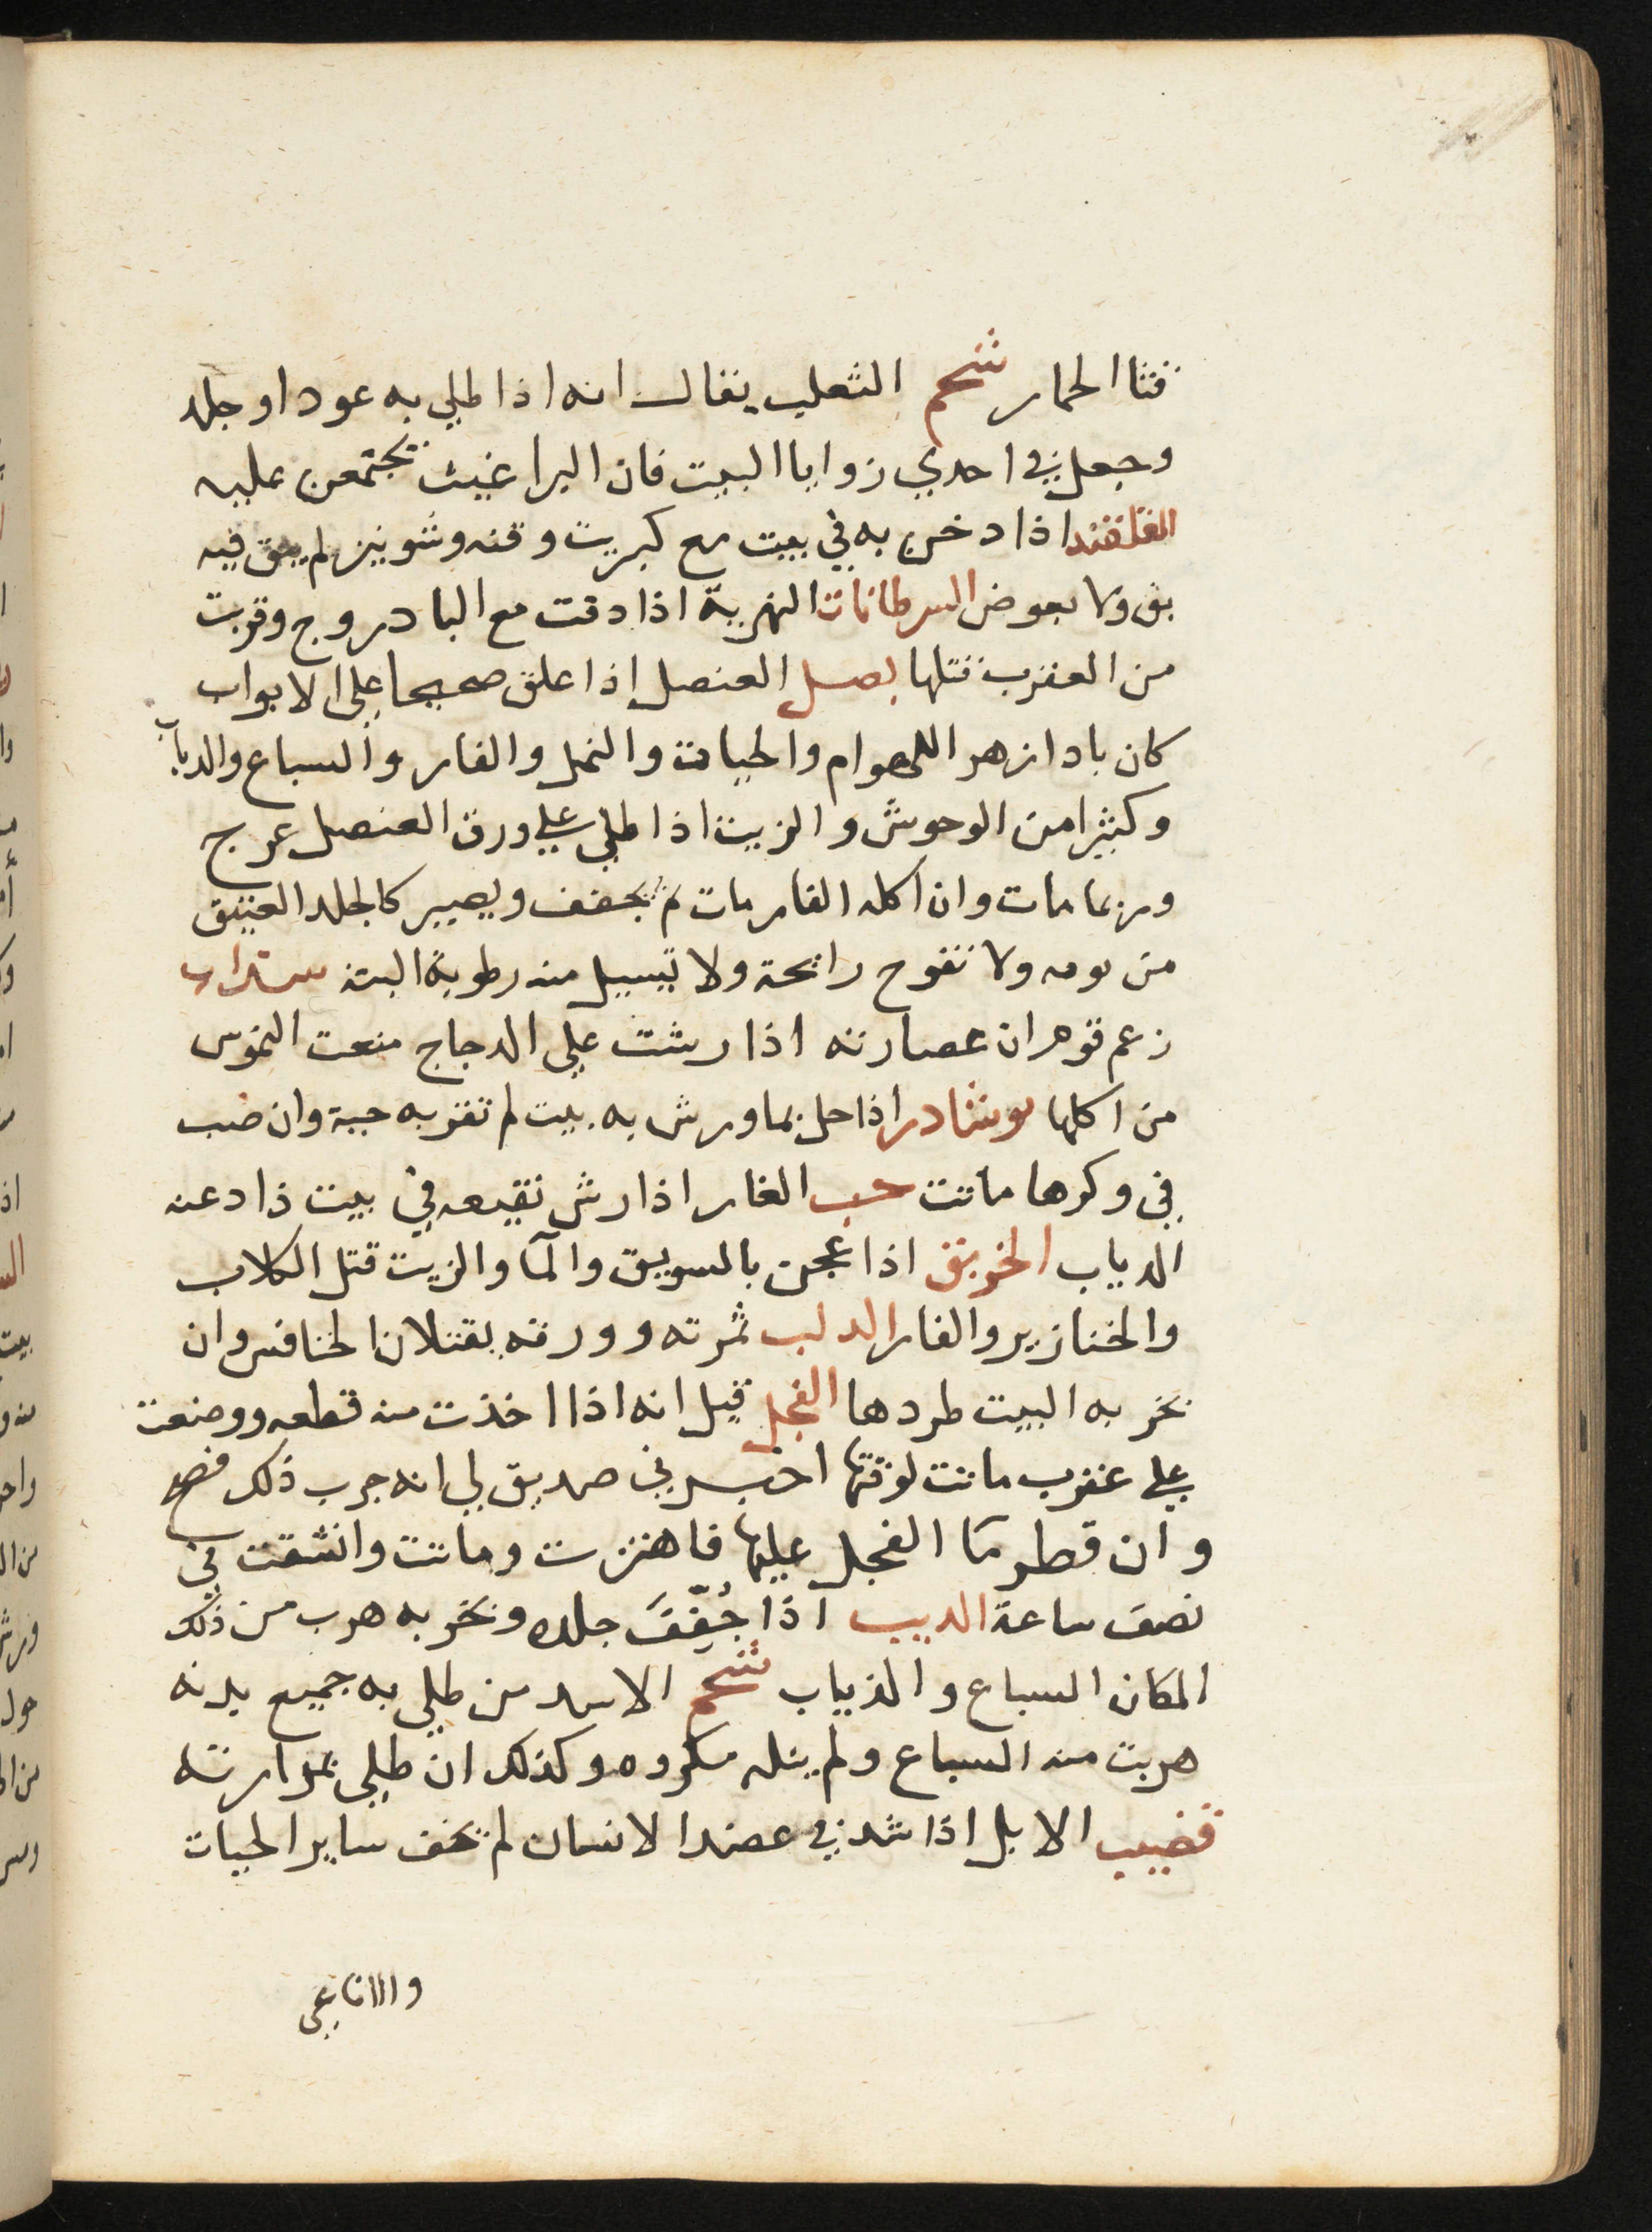 قثا الحمار شحم الثعلب يقال انه اذا طلي به عود او جلد
وجعل في احدي زوايا البيت فان البراغيث تجتمعن عليه
القلقند اذا دخن به في بيت مع كبريت وقنه وشونيز لم يبق فيه
بق ولا بعوض السرطانات النهرية اذا دقت مع البادروج وقربت
من العقرب قتلها بصل العنصل اذا علق صحيحا على الابواب
كان بادازهر اللهوام والحيات والنمل والفار والسباع والدياب
وكثيرا من الوحوش والزيت اذا طلي علي ورق العنصل عرج
وربما مات وان اكله الفار مات ثم يجفف ويصير كالجلد العتيق
من يومه ولا تفوح رايحة ولا تسيل منه رطوبة البتة سذاب
زعم قوم ان عصارته اذا رشت علي الدجاج منعت النموس
من اكلها نوشادر اذا حل بما ورش به بيت لم تقربه حية وان صب
في وكرها ماتت حب الغار اذا رش نقيعه في بيت ذاد عنه
الدياب الخربق اذا عجن بالسويق والمآ والزيت قتل الكلاب
والخنازير والفار الدلب ثمرته وورقه يقتلان الخنافس وان
بخر به البيت طردها الفجل قيل انه اذا اخذت منه قطعه ووضعت
علي عقرب ماتت لوقتها اخبرني صديق لي انه جرب ذلك فصح
وان قطر مآ الفجل عليها فاهتزت وماتت وانشقت في
نصف ساعة الديب اذا جُفِّفَ جلده وبخر به هرب من ذلك
المكان السباع والذياب شحم الاسد من طلي به جميع بدنه
هربت منه السباع ولم ينله مكروه وكذلك ان طلي بمرارته
قضيب الابل اذا شد في عضد الانسان لم تخف ساير الحيات
والافاعي